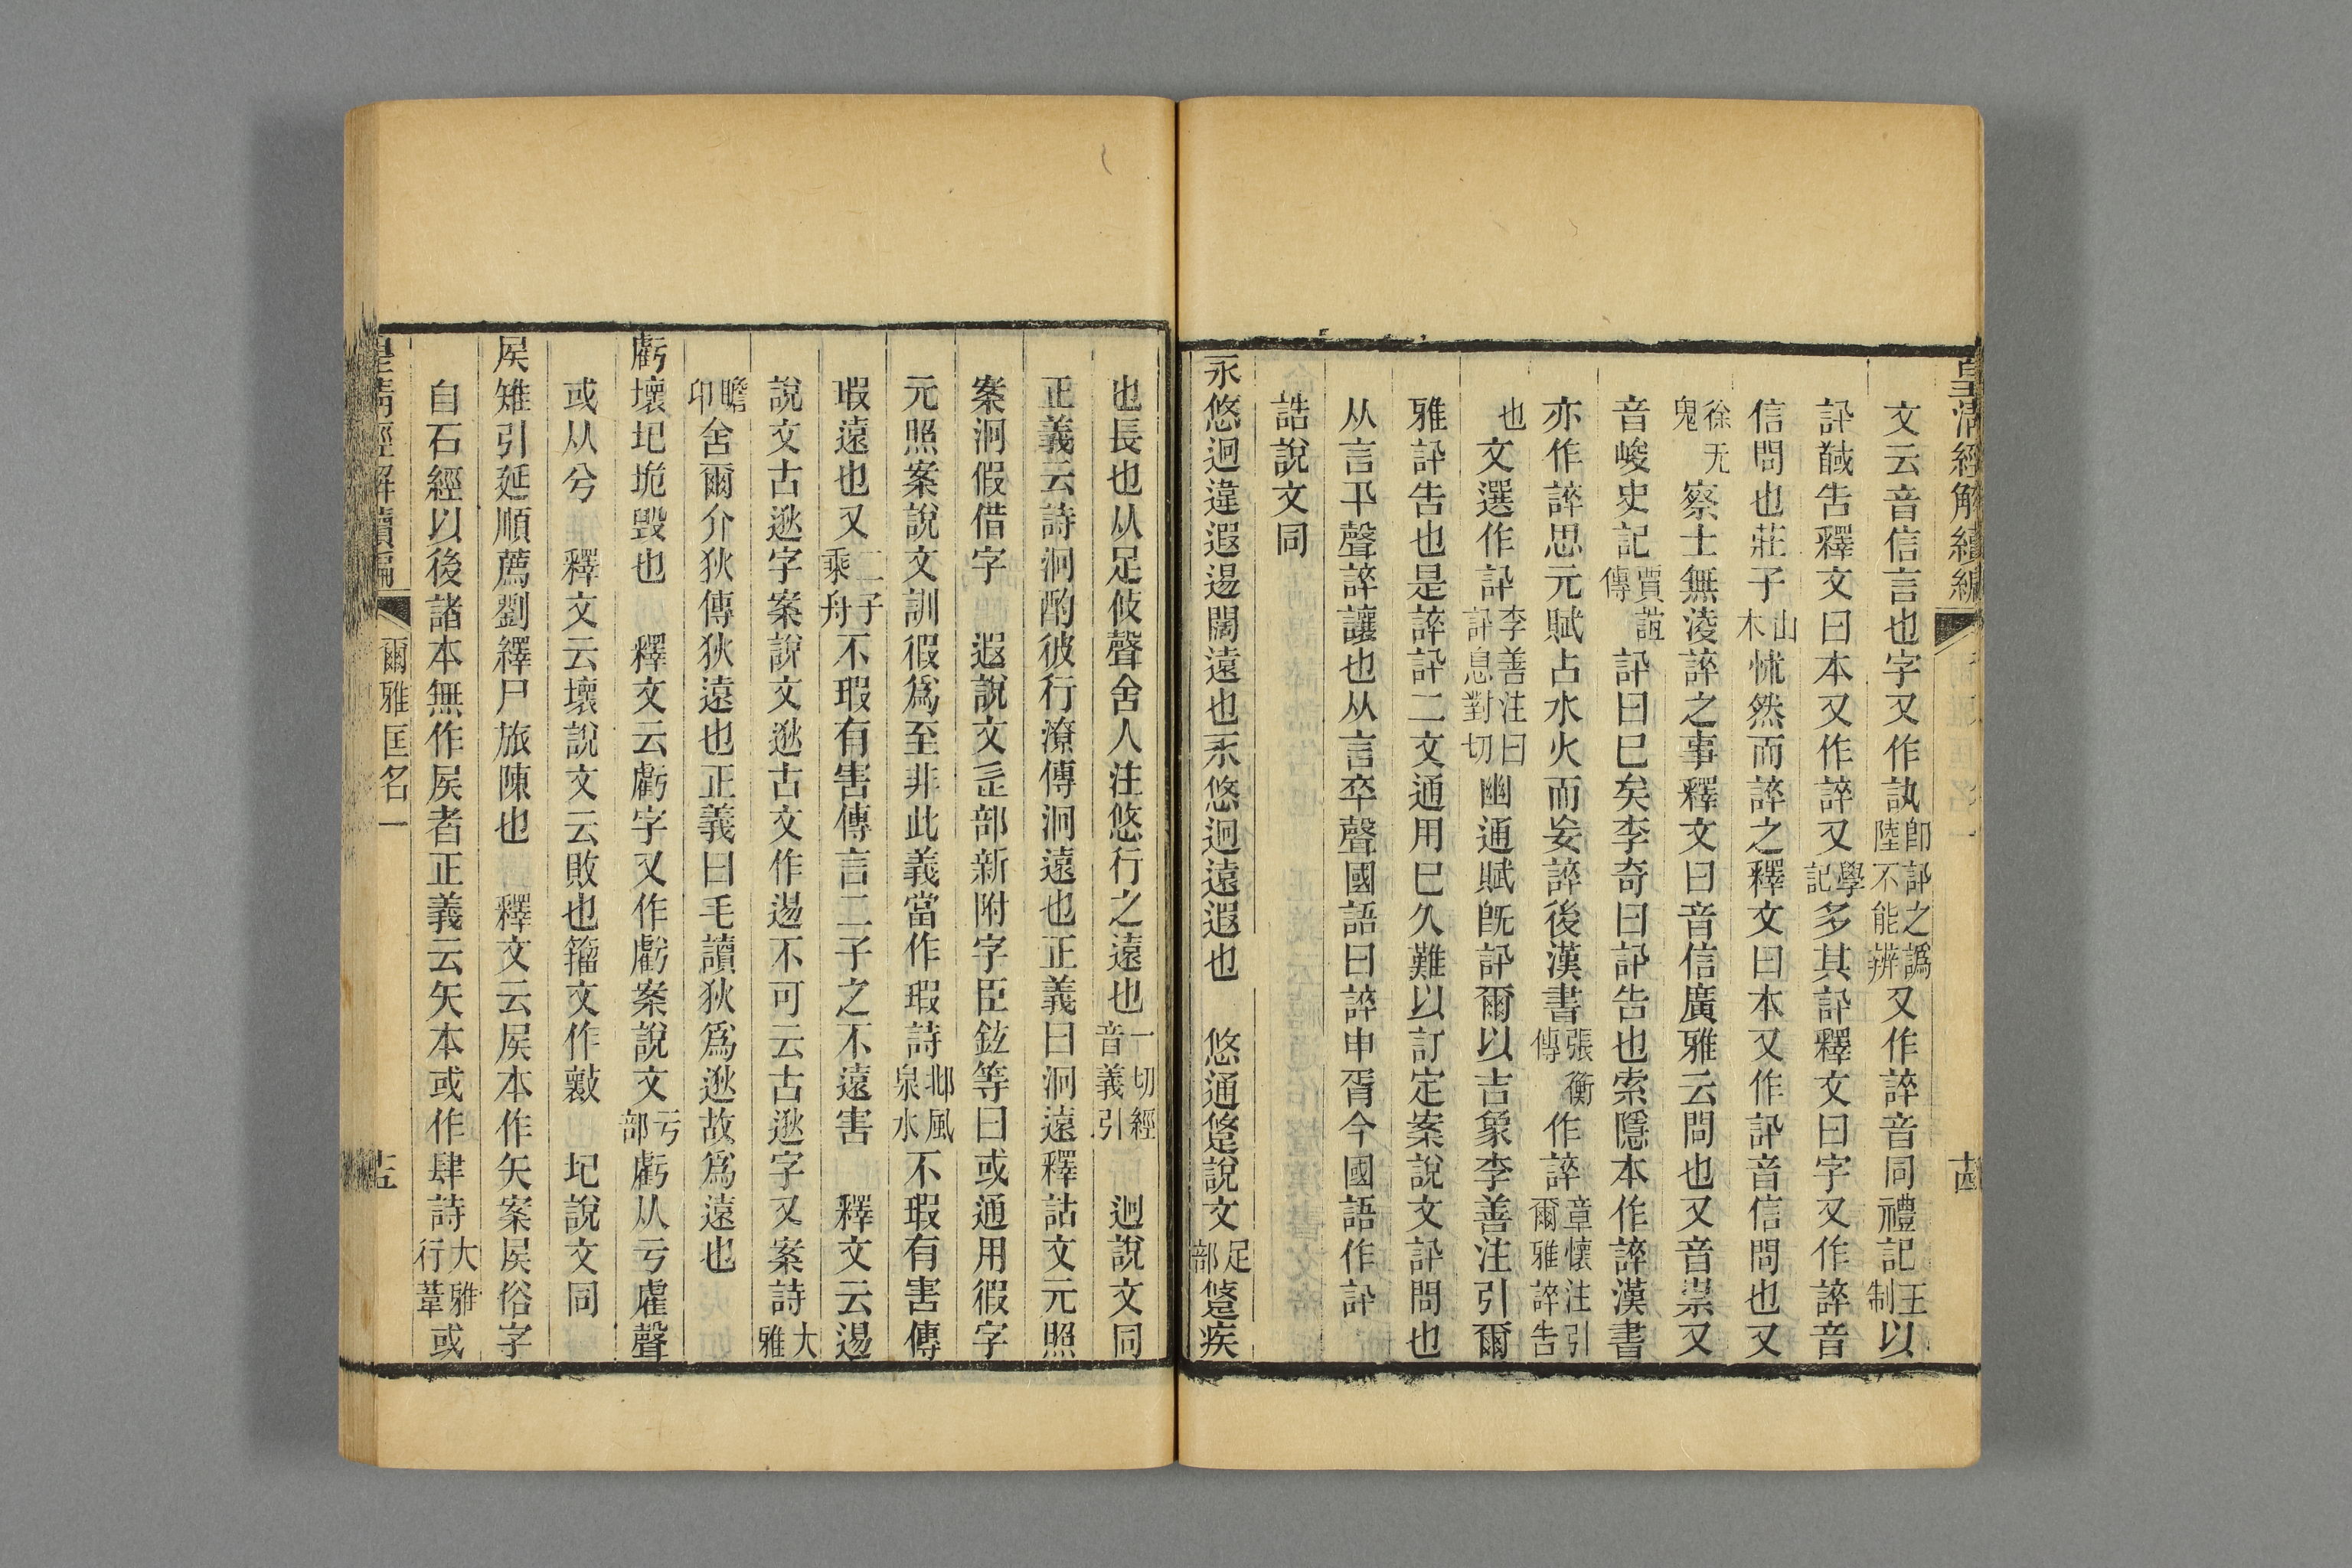 皇清經解續編
十四
文云音信言也字又作訙即訊之譌陸不能辨又作誶音同禮記王制以
訊馘告釋文曰本又作誶又學記多其訊釋文曰字又作誶音
信問也莊子山木怵然而誶之釋文曰本又作訊音信問也又
徐无鬼察士無淩誶之事釋文曰音信廣雅云問也又音祟又
音峻史記賈誼傳訊曰已矣李奇曰訊告也索隱本作誶漢書
亦作誶思元賦占水火而妄誶後漢書張衡傳作誶章懷注引爾雅誶告
也文選作訊李善注曰訊息對切幽通賦旣訊爾以吉象李善注引爾
雅訊告也是誶訊二文通用已久難以訂定案說文訊問也
从言卂聲誶讓也从言卒聲國語曰誶申胥今國語作訊
誥說文同
永悠迥違遐逷闊遠也永悠迥遠遐也 悠通㤰說文足部㤰疾
也長也从足攸聲舍人注悠行之遠也一切經音義引 迥說文同
正義云詩泂酌彼行潦傳泂遠也正義曰泂遠釋詁文元照
案泂假借字 遐說文辵部新附字臣鉉等曰或通用徦字
元照案說文訓徦爲至非此義當作瑕詩邶風泉水不瑕有害傳
瑕遠也又二子乘舟不瑕有害傳言二子之不遠害 釋文云逷
說文古逖字案說文逖古文作逷不可云古逖字又案詩大雅
瞻卬舍爾介狄傳狄遠也正義曰毛讀狄爲逖故爲遠也
虧壞圮垝毀也 釋文云虧字又作虧案說文亏部虧从亏雐聲
或从兮 釋文云壞說文云敗也籀文作㱱 圮說文同
矦雉引延順薦劉繹尸旅陳也 釋文云矦本作矢案矦俗字
自石經以後諸本無作矦者正義云矢本或作肆詩大雅行葦或
皇清經解續編
爾雅匡名一